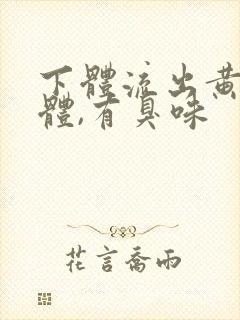 下體流出黃
體,有臭味
花言喬雨